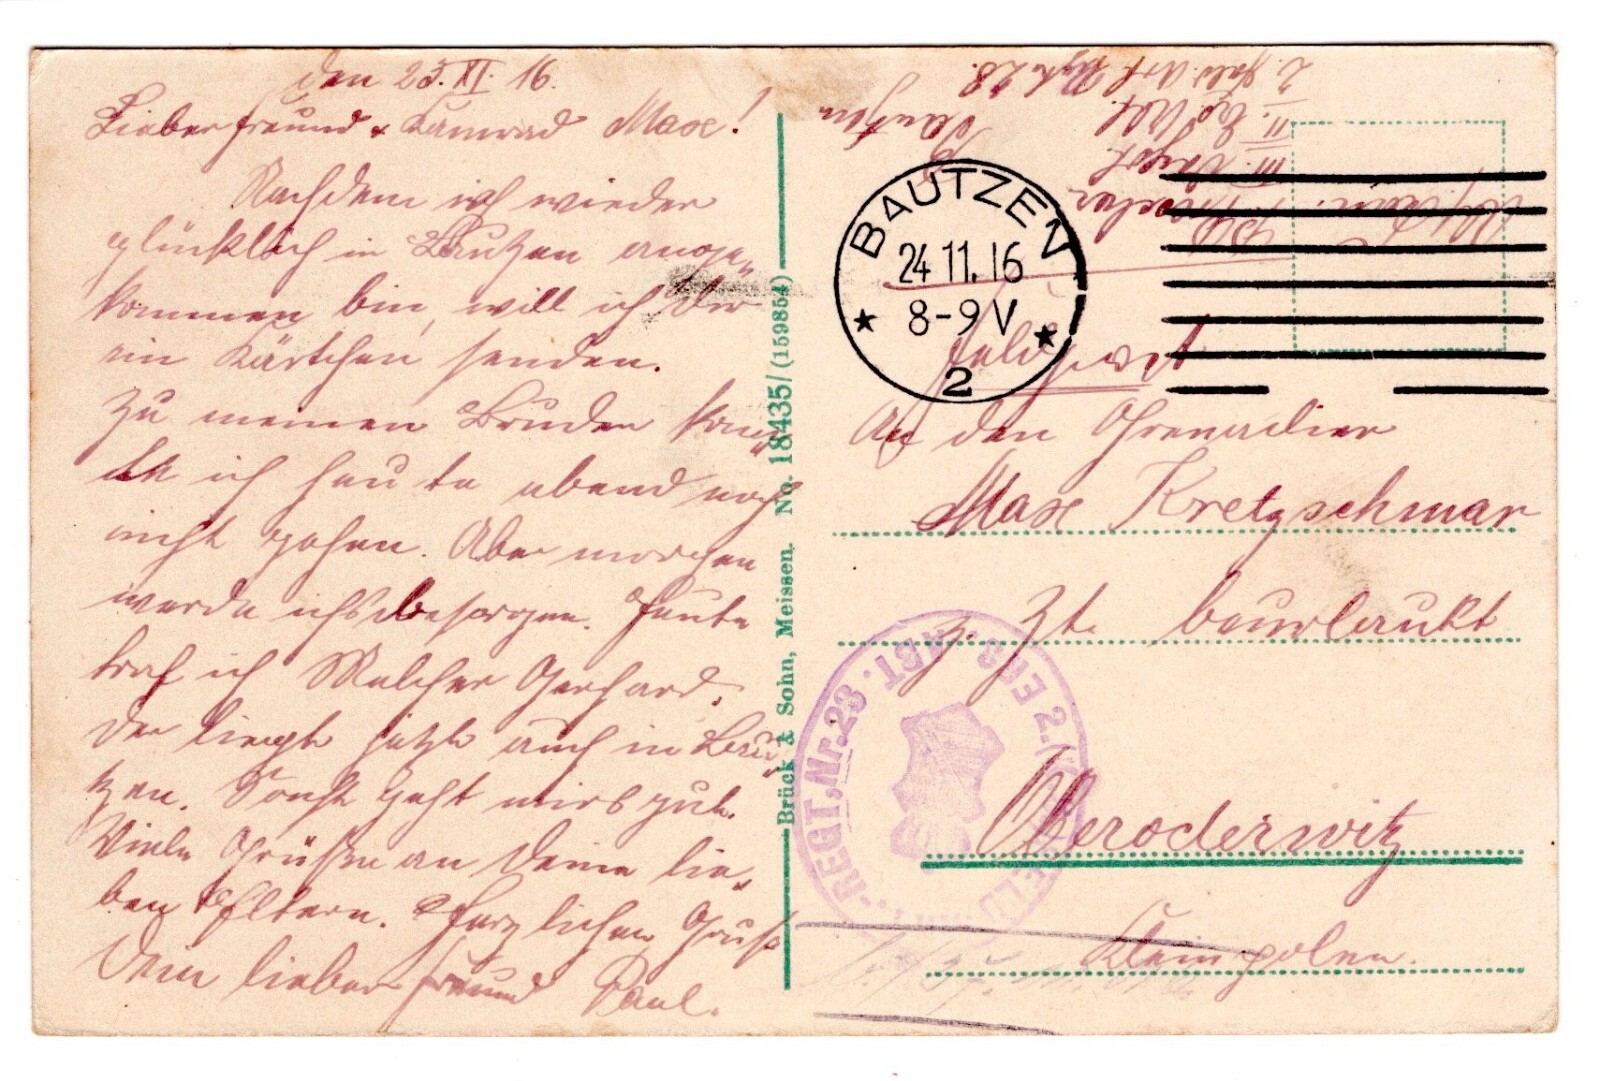 den 23. XI. 16.
Lieber Freund & Kamrad Max!
Nachdem ich wieder
glücklich in Bautzen ange„
kommen bin, will ich Dir
ein Kärtchen senden.
Zu meinen Bruder kon„
te ich heute abend noch
nicht gehen. Aber morgen
werde ichs besorgen. Heute
traf ich Melcher Gerhard.
Der liegt jetzt auch in Baut„
zen. Sonst geht mirs gut.
Viele Grüße an Deine lie„
ben Eltern. Herzlichen Gruß
Dein lieber Freund Paul.
Brück & Sohn, Meissen. No. 18435/(159854)
Bautzen
2. Feld. Art. Regt. 28.
BAUTZEN
24 11. 16
8-9 V
2
Feldpost
An den Grenadier
Max Kretzschmar
z. Zt. beurlaubt
Oberoderwitz
Kleinpolen.
2. ERS. ABT. REGT. Nr. 28